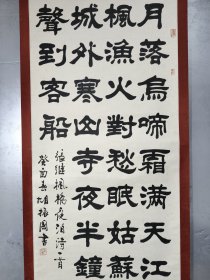 月落烏啼霜滿天江
楓漁火對愁眠姑蘇
城外寒山寺夜半鐘
聲到客船
張继楓橋夜泊诗一首
癸酉春
書